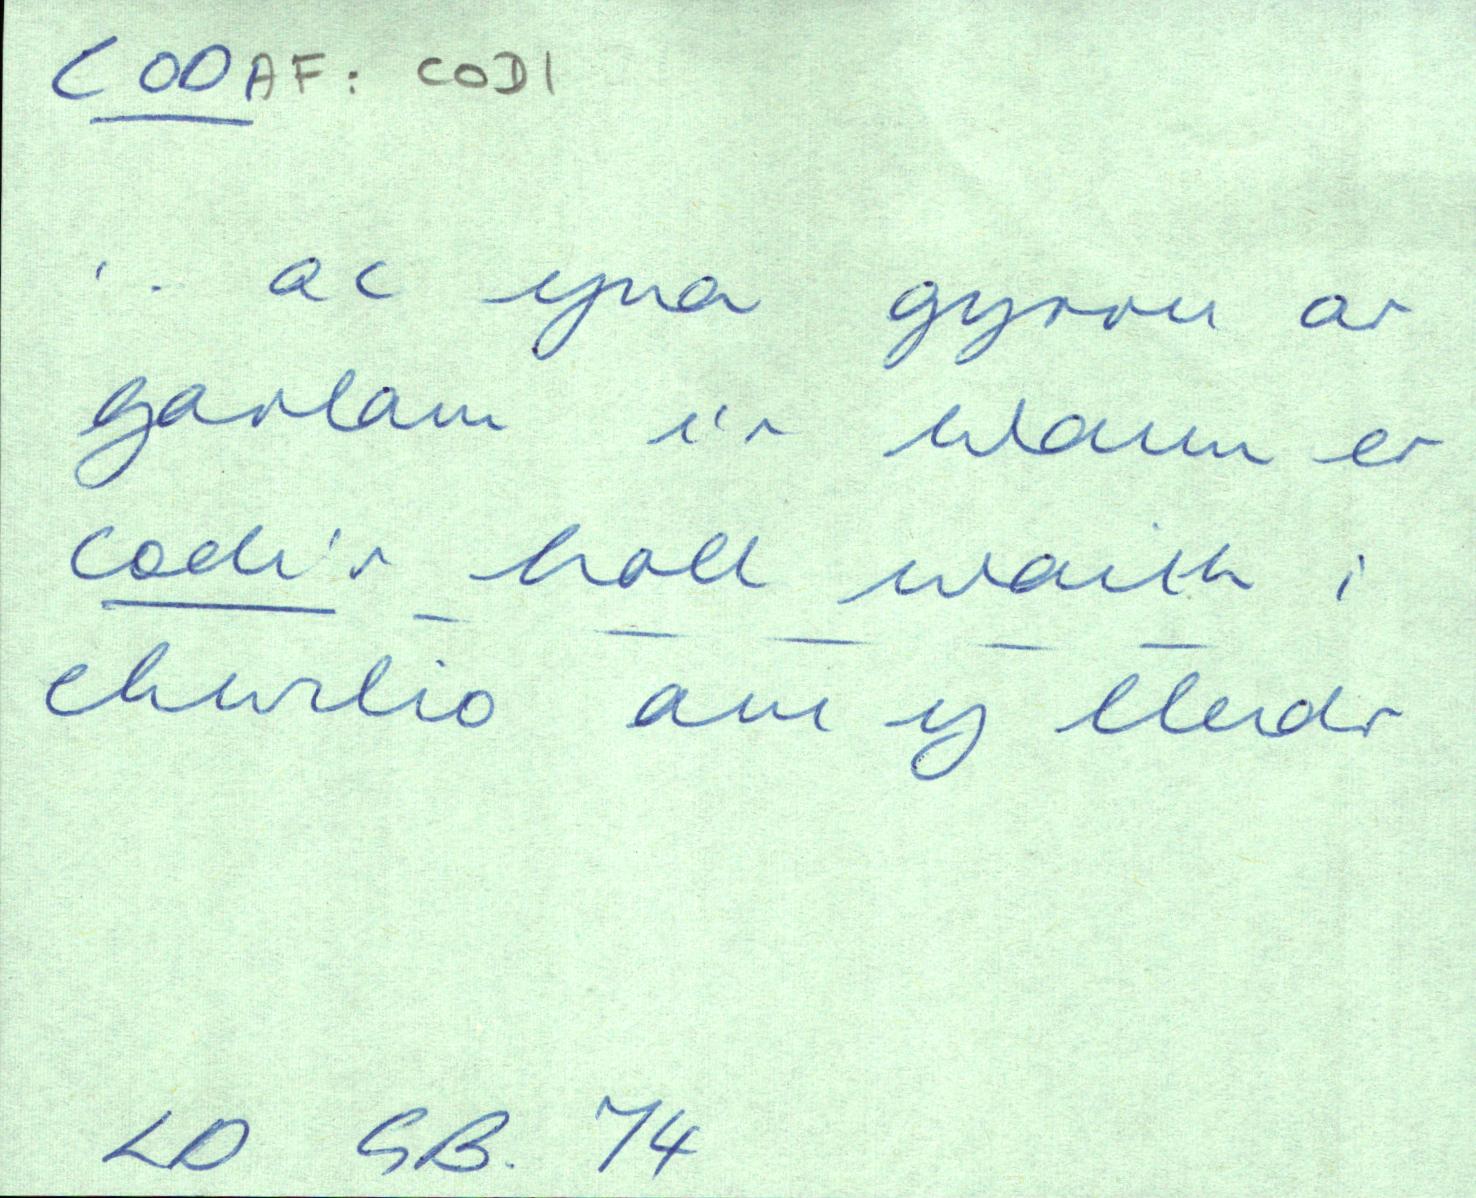 CODAF: CODI
... ac yna gyrru ar
garlam i'r Waun er
codi'r holl waith i
chwilio am y lleidr
LD GB. 74